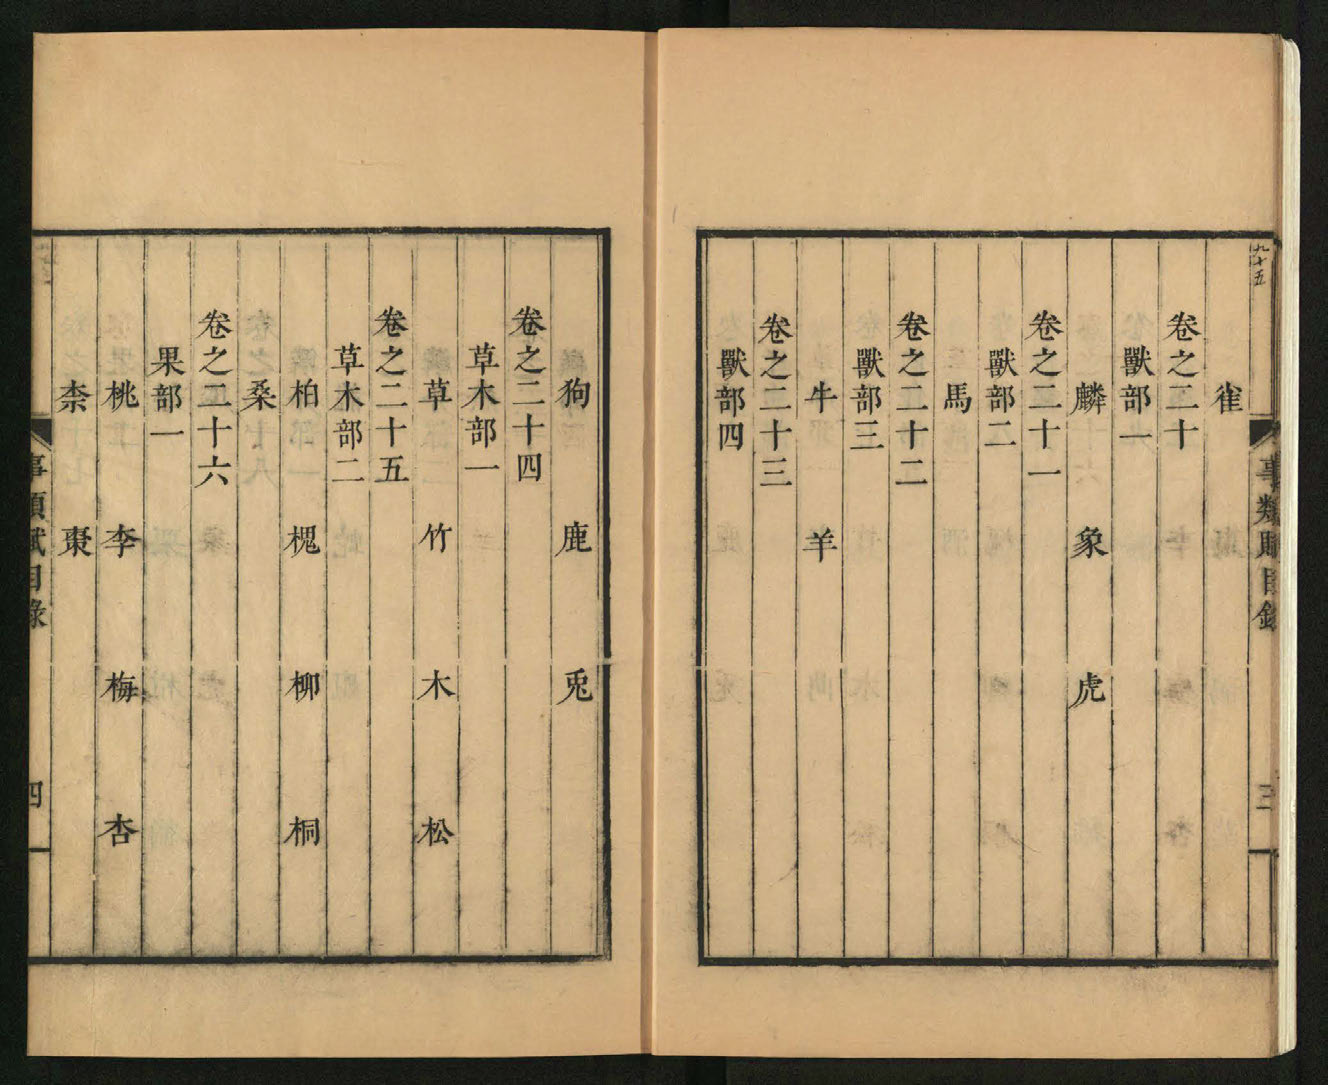 九十五
事類賦目錄
三
雀
卷之二十
獸部一
麟 象 虎
卷之二十一
獸部二
馬
卷之二十二
獸部三
牛 羊
卷之二十三
獸部四
狗 鹿 兎
卷之二十四
草木部一
草 竹 木 松
卷之二十五
草木部二
柏 槐 柳 桐
桑
卷之二十六
果部一
桃 李 梅 杏
柰 棗
事類賦目錄
四